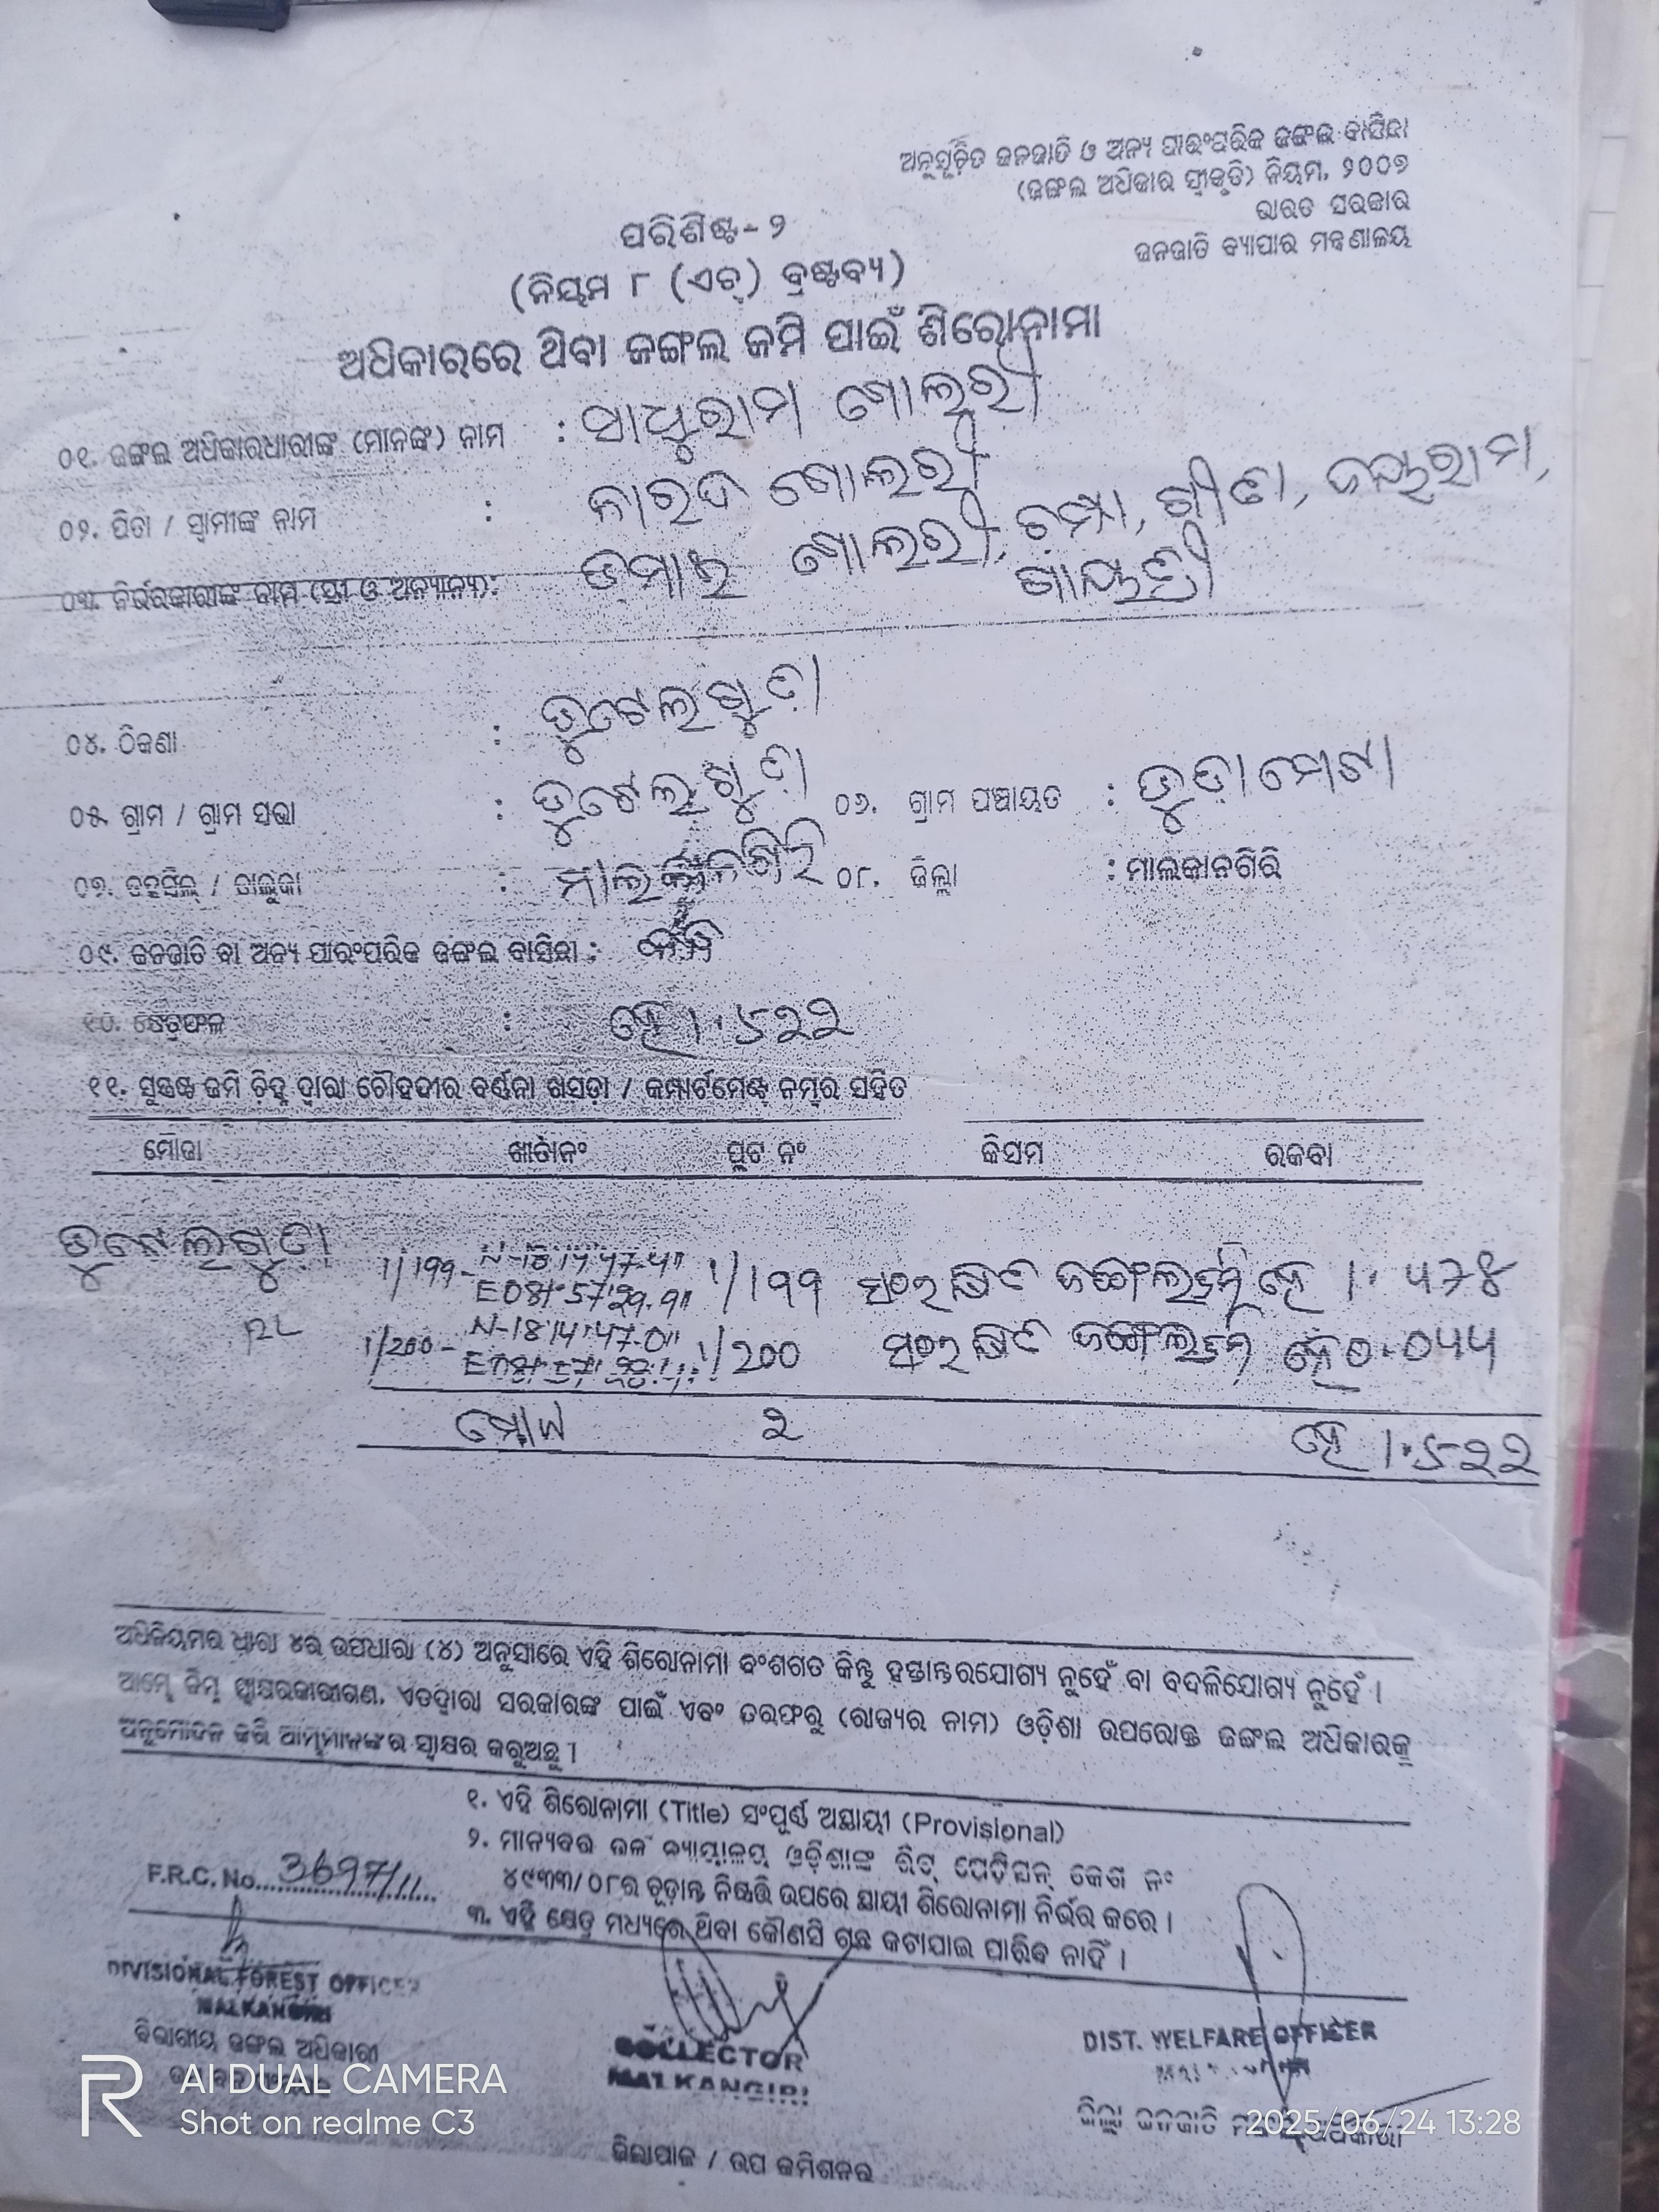 ଅନୁସୂଚିତ ଜନଜାତି ଓ ଅନ୍ୟ ପାରଂପରିକ ଜଙ୍ଗଲ ବାସିନ୍ଦା
(ଜଙ୍ଗଲ ଅଧିକାର ସ୍ୱୀକୃତି) ନିୟମ, ୨୦୦୭
ଭାରତ ସରକାର
ଜନଜାତି ବ୍ୟାପାର ମନ୍ତ୍ରଣାଳୟ
ପରିଶିଷ୍ଟ-୨
(ନିୟମ ୮ (ଏଚ୍) ଦ୍ରଷ୍ଟବ୍ୟ)
ଅଧିକାରରେ ଥିବା ଜଙ୍ଗଲ ଜମି ପାଇଁ ଶିରୋନାମା
୦୧. ଜଙ୍ଗଲ ଅଧିକାରଧାରୀଙ୍କ (ମାନଙ୍କ) ନାମ : ସାଧୁରାମ ଗୋଲରୀ
୦୨. ପିତା / ସ୍ୱାମୀଙ୍କ ନାମ : ନାରଦ ଗୋଲରୀ
୦୩. ନିର୍ଭରକାରୀଙ୍କ ନାମ (ସ୍ତ୍ରୀ ଓ ଅନ୍ୟାନ୍ୟ): ଗୋଲରୀ, ଚମ୍ପା, ଗୀତା, ଜୟରାମ,
ଗାୟତ୍ରୀ
୦୪. ଠିକଣା : ଭୁଟେଲଗୁଡ଼ା
୦୫. ଗ୍ରାମ / ଗ୍ରାମ ସଭା : ଭୁଟେଲଗୁଡ଼ା ୦୬. ଗ୍ରାମ ପଞ୍ଚାୟତ :
୦୭. ତହସିଲ୍ / ତାଲୁକା : ମାଲକାନଗିରି ୦୮. ଜିଲ୍ଲା : ମାଲକାନଗିରି
୦୯. ଜନଜାତି ବା ଅନ୍ୟ ପାରଂପରିକ ଜଙ୍ଗଲ ବାସିନ୍ଦା :
୧୦. କ୍ଷେତ୍ରଫଳ : ହେ ।.୫୨୨
୧୧. ସୁସ୍ପଷ୍ଟ ଜମି ଚିହ୍ନ ଦ୍ୱାରା ଚୌହଦୀର ବର୍ଣ୍ଣନା ଖସଡ଼ା / କମ୍ପାର୍ଟମେଣ୍ଟ ନମ୍ବର ସହିତ
ମୌଜା ଖାତାନଂ ପ୍ଲଟ ନଂ କିସମ ରକବା
ଭୁଟେଲଗୁଡ଼ା 1/199 1/199 ସଂରକ୍ଷିତ ଜଙ୍ଗଲ ହେ
1/200 1/200 ସଂରକ୍ଷିତ ଜଙ୍ଗଲ ହେ
ମୋଟ ୨ ହେ ।.୫୨୨
ଅଧିନିୟମର ଧାରା ୪ର ଉପଧାରା (୪) ଅନୁସାରେ ଏହି ଶିରୋନାମା ବଂଶଗତ କିନ୍ତୁ ହସ୍ତାନ୍ତରଯୋଗ୍ୟ ନୁହେଁ ବା ବଦଳିଯୋଗ୍ୟ ନୁହେଁ ।
ଆମ୍ଭେ ନିମ୍ନ ସ୍ୱାକ୍ଷରକାରୀଗଣ, ଏତଦ୍ଵାରା ସରକାରଙ୍କ ପାଇଁ ଏବଂ ତରଫରୁ (ରାଜ୍ୟର ନାମ) ଓଡ଼ିଶା ଉପରୋକ୍ତ ଜଙ୍ଗଲ ଅଧିକାରକୁ
ଅନୁମୋଦନ କରି ଆମ୍ଭମାନଙ୍କର ସ୍ୱାକ୍ଷର କରୁଅଛୁ ।
୧. ଏହି ଶିରୋନାମା (Title) ସଂପୂର୍ଣ୍ଣ ଅସ୍ଥାୟୀ (Provisional)
୨. ମାନ୍ୟବର ଉଚ୍ଚ ନ୍ୟାୟାଳୟ ଓଡ଼ିଶାଙ୍କ ରିଟ୍ ପେଟିସନ୍ କେଶ ନଂ
୪୯୩୩/୦୮ର ଚୂଡ଼ାନ୍ତ ନିଷ୍ପତ୍ତି ଉପରେ ସ୍ଥାୟୀ ଶିରୋନାମା ନିର୍ଭର କରେ ।
୩. ଏହି କ୍ଷେତ୍ର ମଧ୍ୟରେ ଥିବା କୌଣସି ଗଛ କଟାଯାଇ ପାରିବ ନାହିଁ ।
F.R.C. No. 3697/11
DIVISIONAL FOREST OFFICER
MALKANGIRI
ବିଭାଗୀୟ ଜଙ୍ଗଲ ଅଧିକାରୀ
COLLECTOR
MALKANGIRI
ଜିଲାପାଳ / ଉପ କମିଶନର
DIST. WELFARE OFFICER
ଜିଲ୍ଲା ଜନଜାତି
AI DUAL CAMERA
Shot on realme C3
2025/06/24 13:28